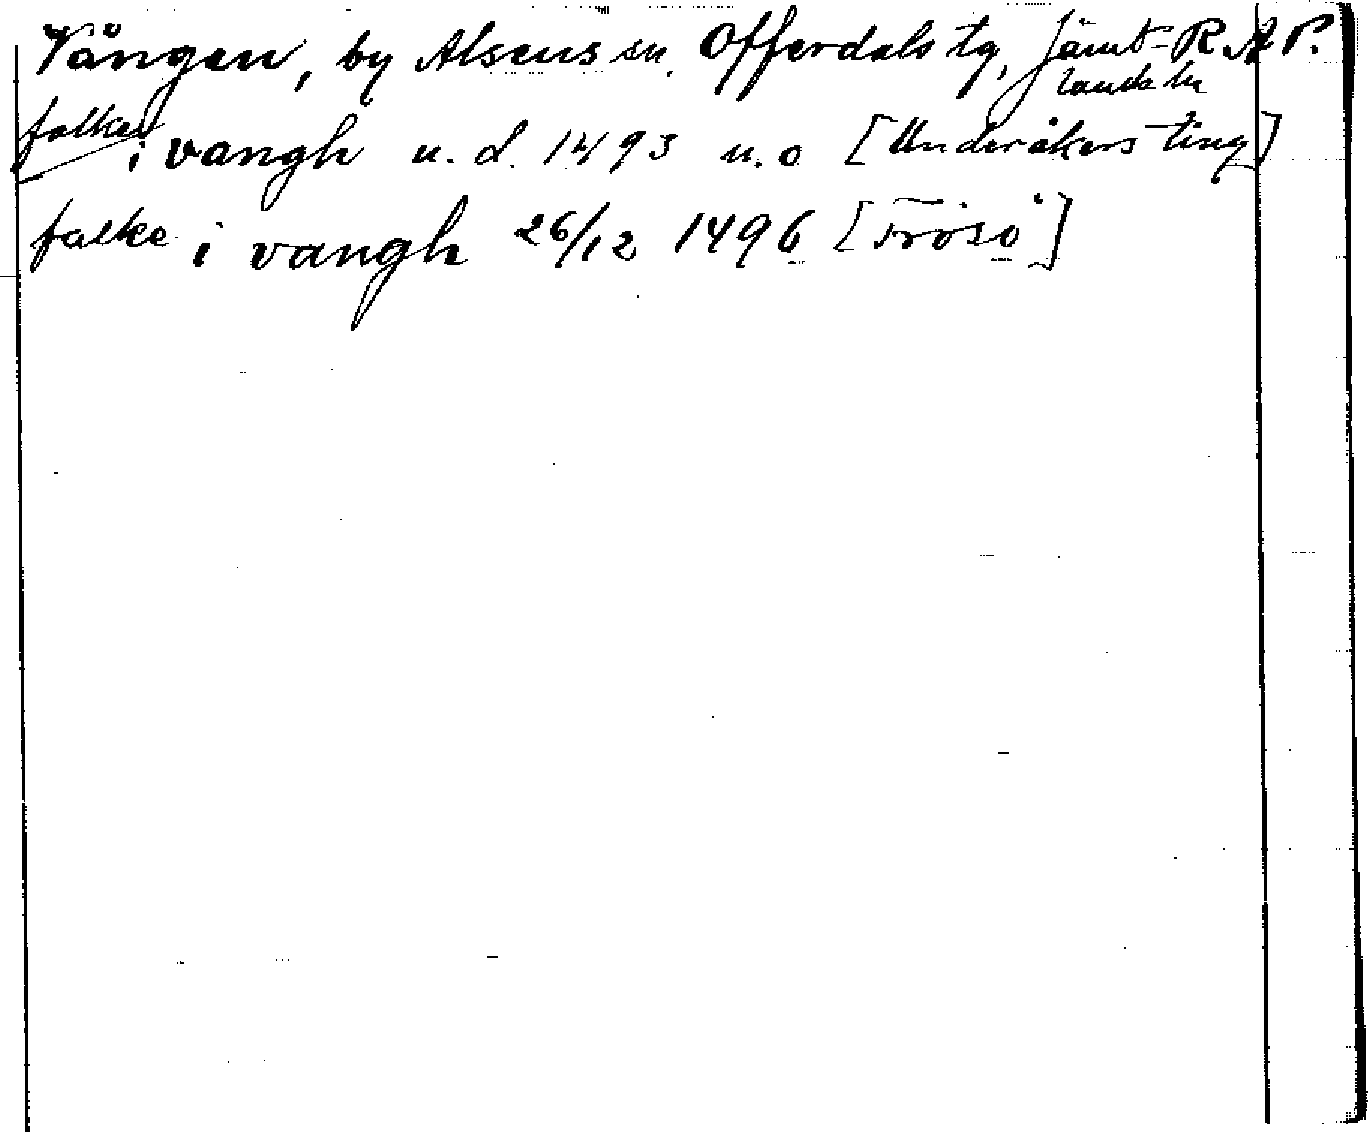 Vången, by Alsens sn, Offerdals tg, Jämt- R.A.P.
lands ln
falke i vangh u. d. 1493 u.o [Underåkers ting]
falke i vangh 26/12 1496 [Frösö]